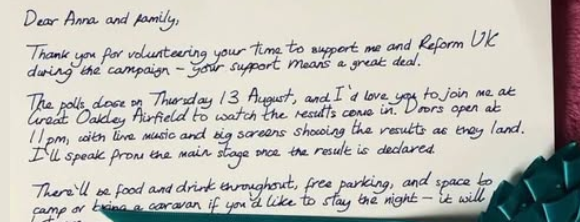 Dear Anna and family,
Thank you for volunteering your time to support me and Reform UK
during the campaign – your support means a great deal.
The polls close on Thursday 13 August, and I'd love you to join me at
Great Oakley Airfield to watch the results come in. Doors open at
11pm, with live music and big screens showing the results as they land.
I'll speak from the main stage once the result is declared.
There'll be food and drink throughout, free parking, and space to
camp or bring a caravan if you'd like to stay the night – it will